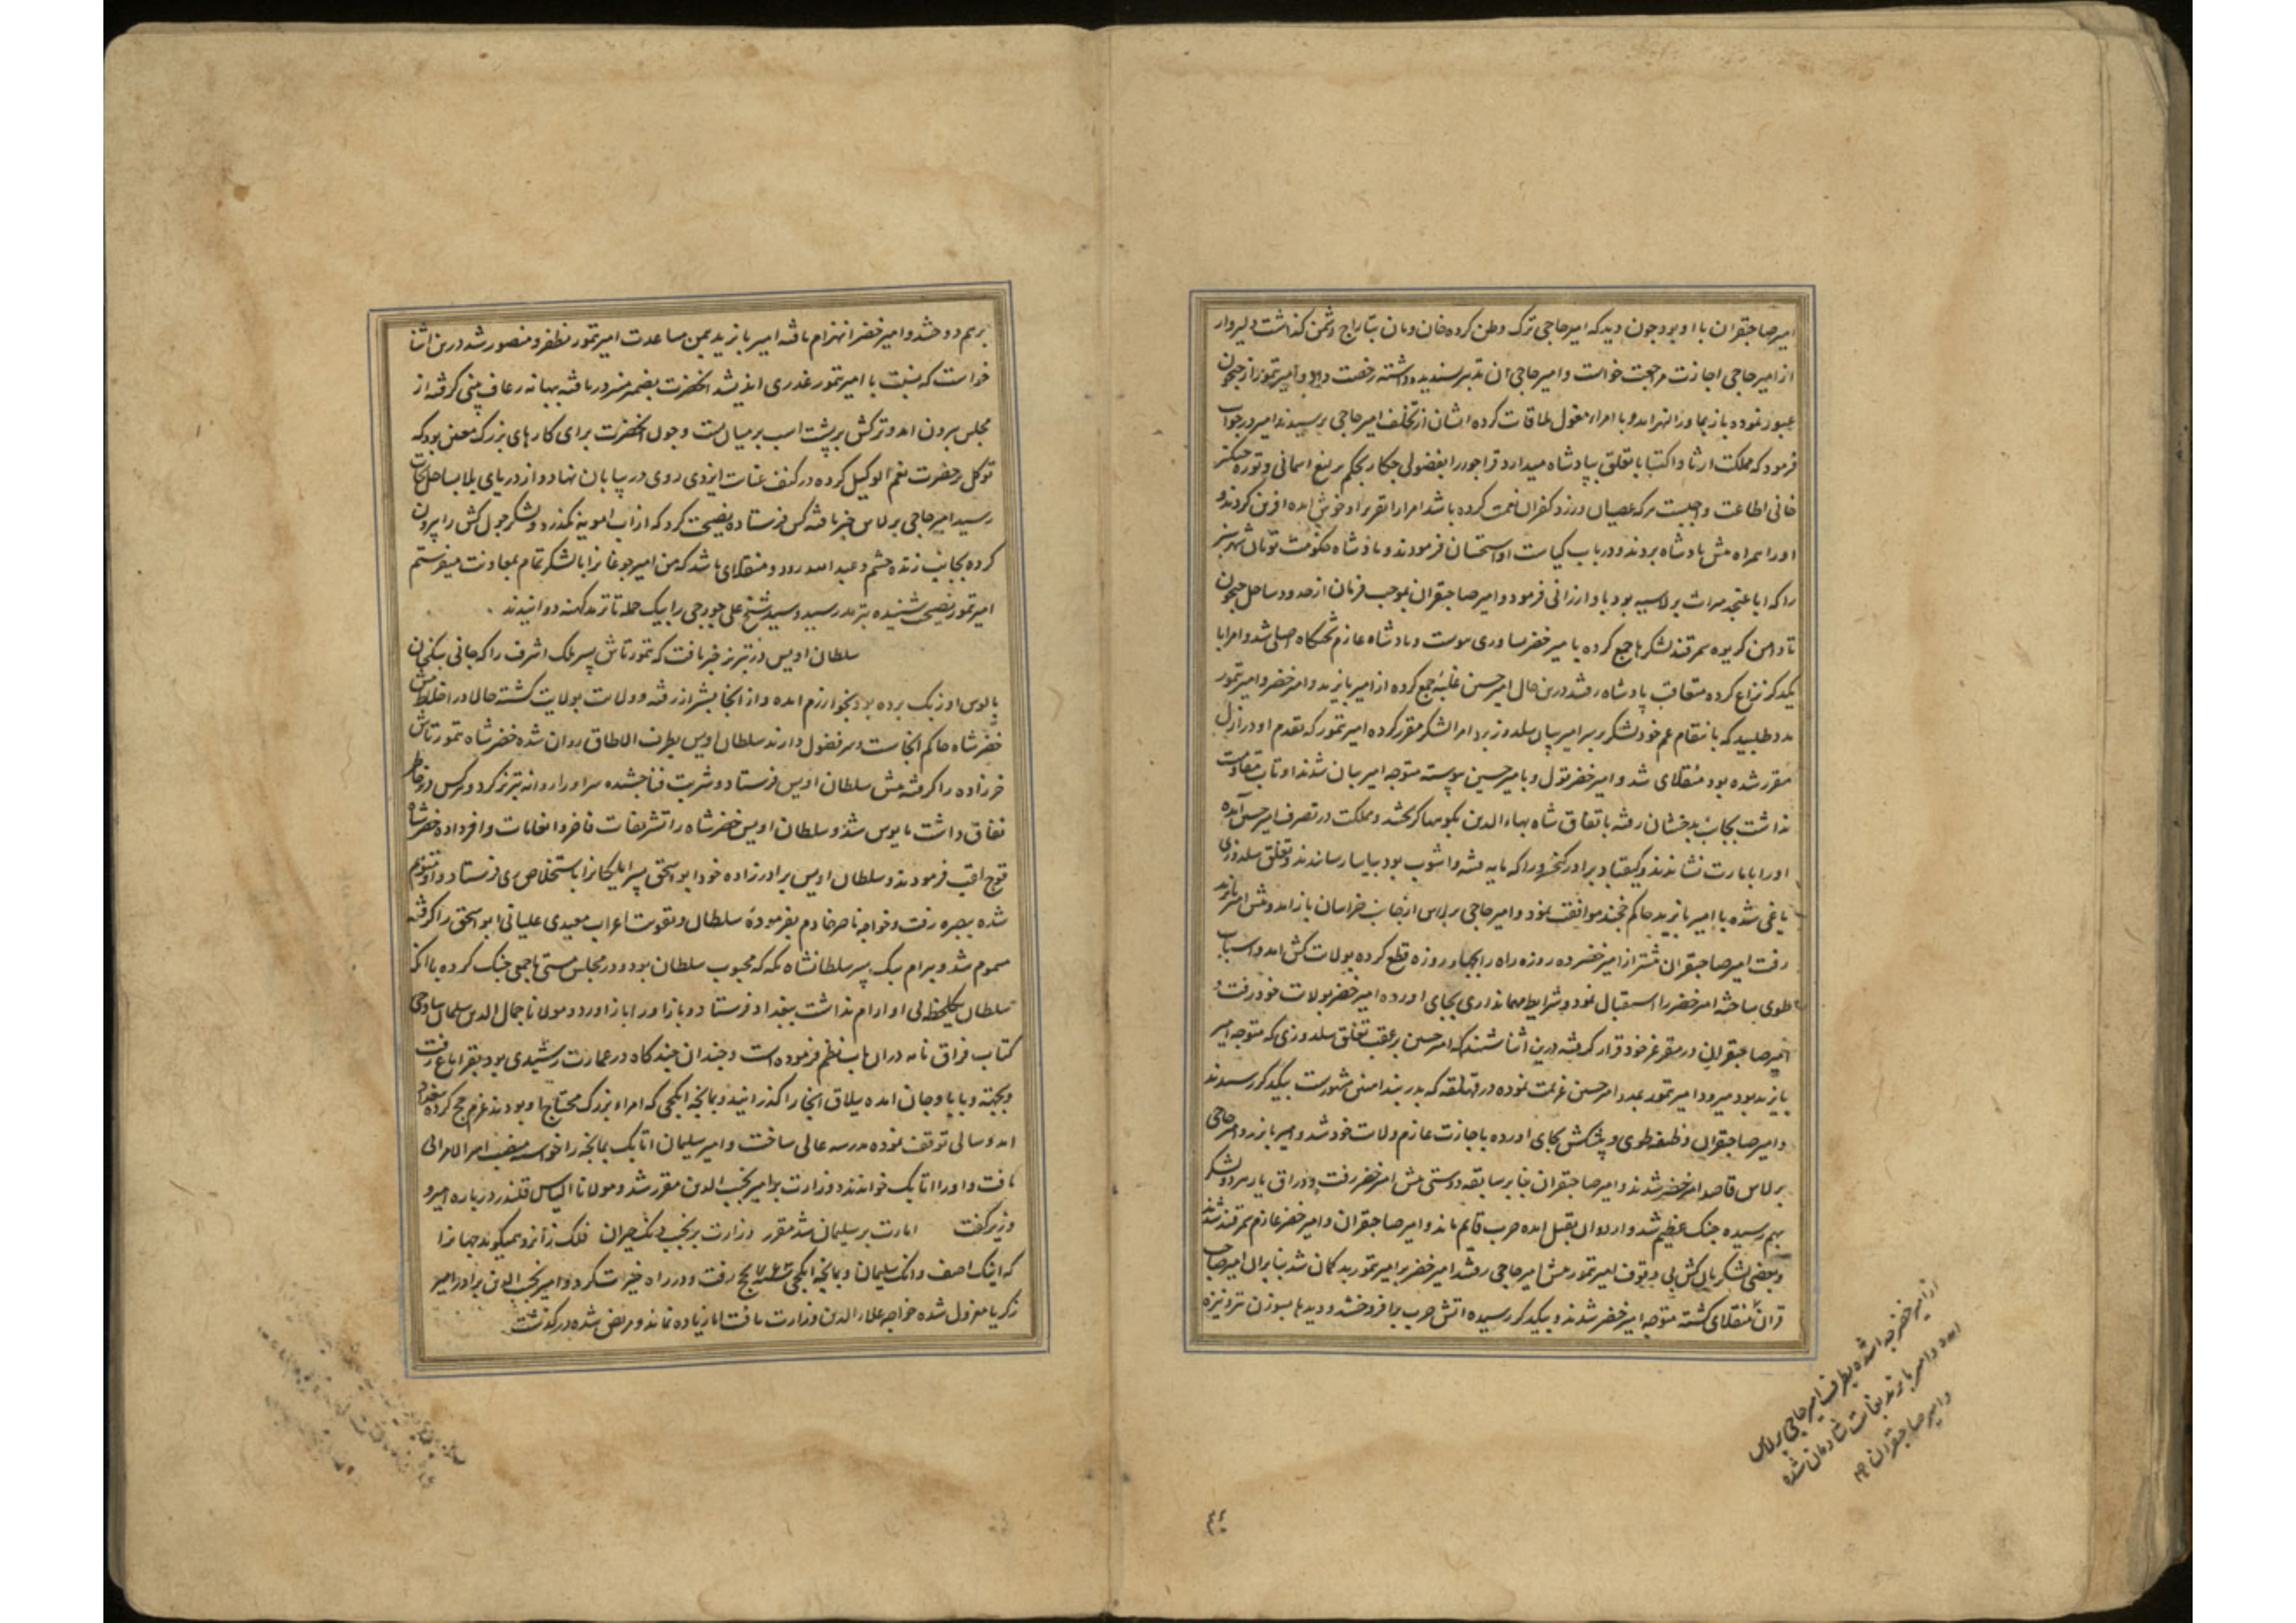 امیر صاحبقران با او بود چون دید که امیر حاجی ترک وطن کرده خان و مان بتاراج دشمن گذاشت دلیروار
از امیر حاجی اجازت مراجعت خواست و امیر حاجی آن تدبیر پسندیده داشته رخصت داد و امیر تمور از جیحون
عبور نموده باز بماورالنهر امد و با امراء مغول ملاقات کرده ایشان از تخلف امیر حاجی پرسیدند امیر در جواب
فرمود که مملکت ارثا و اکتسابا تعلق بپادشاه میدارد قراجور را بفضولی چکار بحکم یرلیغ اسمانی و توره چنگیز
خانی اطاعت واجبست هرکه عصیان ورزد کفران نعمت کرده باشد امرا را تقریر او خوش امده افرین کردند و
او را همراه پیش پادشاه بردند و در باب کیاست او استحسان فرمودند و پادشاه حکومت تومان شهر سبز
را که ابا عن جد میراث برلاسیه بود باو ارزانی فرمود و امیر صاحبقران بموجب فرمان از حدود ساحل جیحون
تا دامن کریوه سمرقند لشکرها جمع کرده با میر خضر یساوری پیوست و پادشاه عازم تختگاه اصلی شد و امرا با
یکدیگر نزاع کرده متعاقب پادشاه رفتند درین حال امیر حسین غلبه جمع کرده از امیر بایزید و امیر خضر و امیر تمور
مدد طلبید که بانتقام عم خود لشکر بر سر امیر بیان سلدوز برد امرا لشکر مقرر کرده امیر تمور که تقدم او در ازل
مقرر شده بود منقلای شد و امیر خضر قول و بامیر حسین پیوسته متوجه امیر بیان شدند او تاب مقاومت
نداشت بجانب بدخشان رفته باتفاق شاه بهاءالدین بکوهها گریختند و مملکت در تصرف امیر حسین آمده
او را بامارت نشاندند و کیقباد برادر کیخسرو را که مایه فتنه و اشوب بود بیاسا رسانیدند و تغلق سلدوزی
یاغی شده با امیر بایزید حاکم خجند موافقت نمود و امیر حاجی برلاس از جانب خراسان باز امد و پیش امیر بایزید
رفت امیر صاحبقران پیشتر از امیر خضر ده روزه راه را بچهار روزه قطع کرده بولایت کش امد و اسباب
طوی ساخته امیر خضر را استقبال نمود و شرایط مهمانداری بجای اورده امیر خضر بولایت خود رفت و
امیر صاحبقران در مقر عز خود قرار گرفته درین اثنا شنید که امیر حسین بر عقب تغلق سلدوزی که متوجه امیر
بایزید بود میرود امیر تمور بمدد امیر حسین عزیمت نموده در قهلقه که بدر بند اهنین مشهورست بیکدیگر رسیدند
و امیر صاحبقران وظیفه طوی و پیشکش بجای اورده باجازت عازم ولایت خود شد و امیر بایزید و امیر حاجی
برلاس قاصد امیر خضر شدند و امیر صاحبقران بنابر سابقه دوستی پیش امیر خضر رفت و در اق یار هر دو لشکر
بهم رسیده جنگ عظیم شد و امده حرب قایم ماند و امیر صاحبقران و امیر خضر عازم سمرقند شدند
و بعضی لشکریان کش بی وقوف امیر تمور پیش امیر حاجی رفتند امیر خضر بر امیر تمور بدگمان شد بنابران امیر صاحب
قران منقلای گشته متوجه امیر خضر شدند و بیکدیگر رسیده اتش حرب برافروختند و دیدها بسوزن تیر و نیزه
از امیر خضر جدا شده بطرف امیر حاجی برلاس
امد و امیر بایزید بغایت شادمان شده
و امیر صاحبقران
برهم دوختند و امیر خضر انهزام یافته امیر بایزید بیمن مساعدت امیر تمور مظفر و منصور شد درین اثنا
خواست که نسبت با امیر تمور غدری اندیشد انحضرت بضمیر منور دریافته ببهانه رعاف بینی گرفته از
مجلس بیرون امد و ترکش بر پشت اسب بر میان بست و چون انحضرت برای کارهای بزرگ معین بود که
توکل بر حضرت نعم الوکیل کرده در کنف عنایت ایزدی روی در بیابان نهاد و از دریای بلا بساحل نجات
رسید امیر حاجی برلاس خبر یافته کس فرستاده نصیحت کرد که از اب امویه نگذرد و لشکر چول کش را بیرون
کرده بجانب زنده چشم و عبدالله رود و منقلای باشد که من امیر جوغا نرا با لشکر تمام بمعاونت میفرستم
امیر تمور نصیحت شنیده بترمد رسید و سید شیخ علی جورجی را بیک حمله تا ترمد کهنه دوانیدند
سلطان اویس در تبریز خبر یافت که تمورتاش پسر ملک اشرف را که جانی بیک خان
بالوس اوزبک برده بود بخوارزم امده و از انجا بشیراز رفته و ولایت بولایت گشته حالا در اخلاط پیش
خضر شاه حاکم انجاست و سر فضول دارند سلطان اویس بطرف الاطاق روان شده خضر شاه تمورتاش
خرزاده را گرفته پیش سلطان اویس فرستاد و شربت فنا چشیده سر او را روانه تبریز کرد و هرکس در خاطر
نفاق داشت مایوس شد و سلطان اویس خضر شاه را تشریفات فاخر و انعامات وافر داده خضر شاه
قوج لقب فرمودند و سلطان اویس برادرزاده خود ابو اسحق پسر ایلکانرا باستخلاص فرستاد و او متوهم
شده ببصره رفت و خواجه ناصر خادم بفرموده سلطان و تقویت اعراب معیدی علیانی ابو اسحق را گرفته
مسموم شد و بیرام بیک پسر سلطانشاه که محبوب سلطان بود و در مجلس مستی با جمعی جنگ کرده با انکه
سلطان یکلحظه بی او ارام نداشت ببغداد فرستاد و باز او را باز اورد و مولانا جمال الدین سلمان ساوجی
کتاب فراق نامه دران باب نظم فرموده است و چندان چند گاه در عمارت رشیدی بود بقراباغ رفت
امده ییلاق انجا را گذرانید و بمانجه ایکجی که امراء بزرگ محتاج او بودند عزم حج کرده ببغداد
امد و سالی توقف نموده مدرسه عالی ساخت و امیر سلیمان اتابک بمانجه را خواسته منصب امیر الامرائی
یافت و او را اتابک خواندند و وزارت بر امیر نجیب الدین مقرر شد و مولانا الیاس قلندر درباره امیر و
وزیر گفت امارت بر سلیمان شد مقرر وزارت بر نجیب دنگ حیران فلک زانرو همیگوید جهانرا
که اینک اصف و انک سلیمان و بمانجه ایکجی بحج رفت و در راه خیرات کرد و امیر نجیب الدین برادر امیر
زکریا معزول شده خواجه علاء الدین وزارت یافت اما زیاده نماند و مریض شده درگذشت